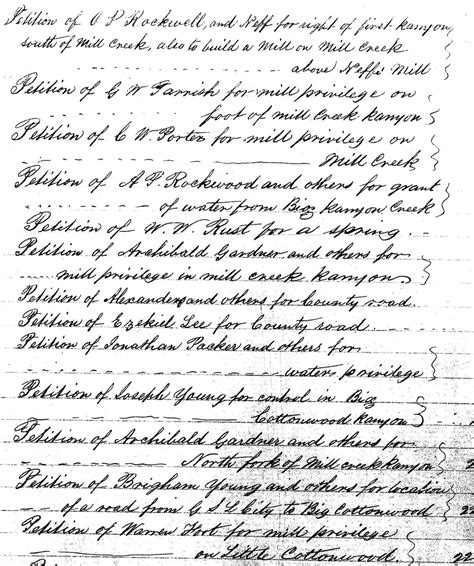 Petition of O P Rockwell, and Neff for right of first kanyon
south of Mill Creek, also to build a Mill on Mill Creek
above Neffs Mill
Petition of G W Parrish for mill privilege on
foot of mill Creek kanyon
Petition of C W. Porter for mill privilege on
Mill Creek
Petition of A P. Rockwood and others for grant
of water from Big Kanyon Creek
Petition of W. W. Rust for a spring
Petition of Archibald Gardner and others for
mill privilege in mill creek kanyon
Petition of Alexander and others for County road.
Petition of Ezekiel Lee for County road
Petition of Jonathan Packer and others for
water privilege
Petition of Joseph Young for control in Big
Cottonwood Kanyon
Petition of Archibald Gardner and others for
North fork of Mill creek kanyon 2
Petition of Brigham Young and others for location
of a road from G S L City to Big Cottonwood 2
Petition of Warren Foot for mill privilege
on Little Cottonwood. 22